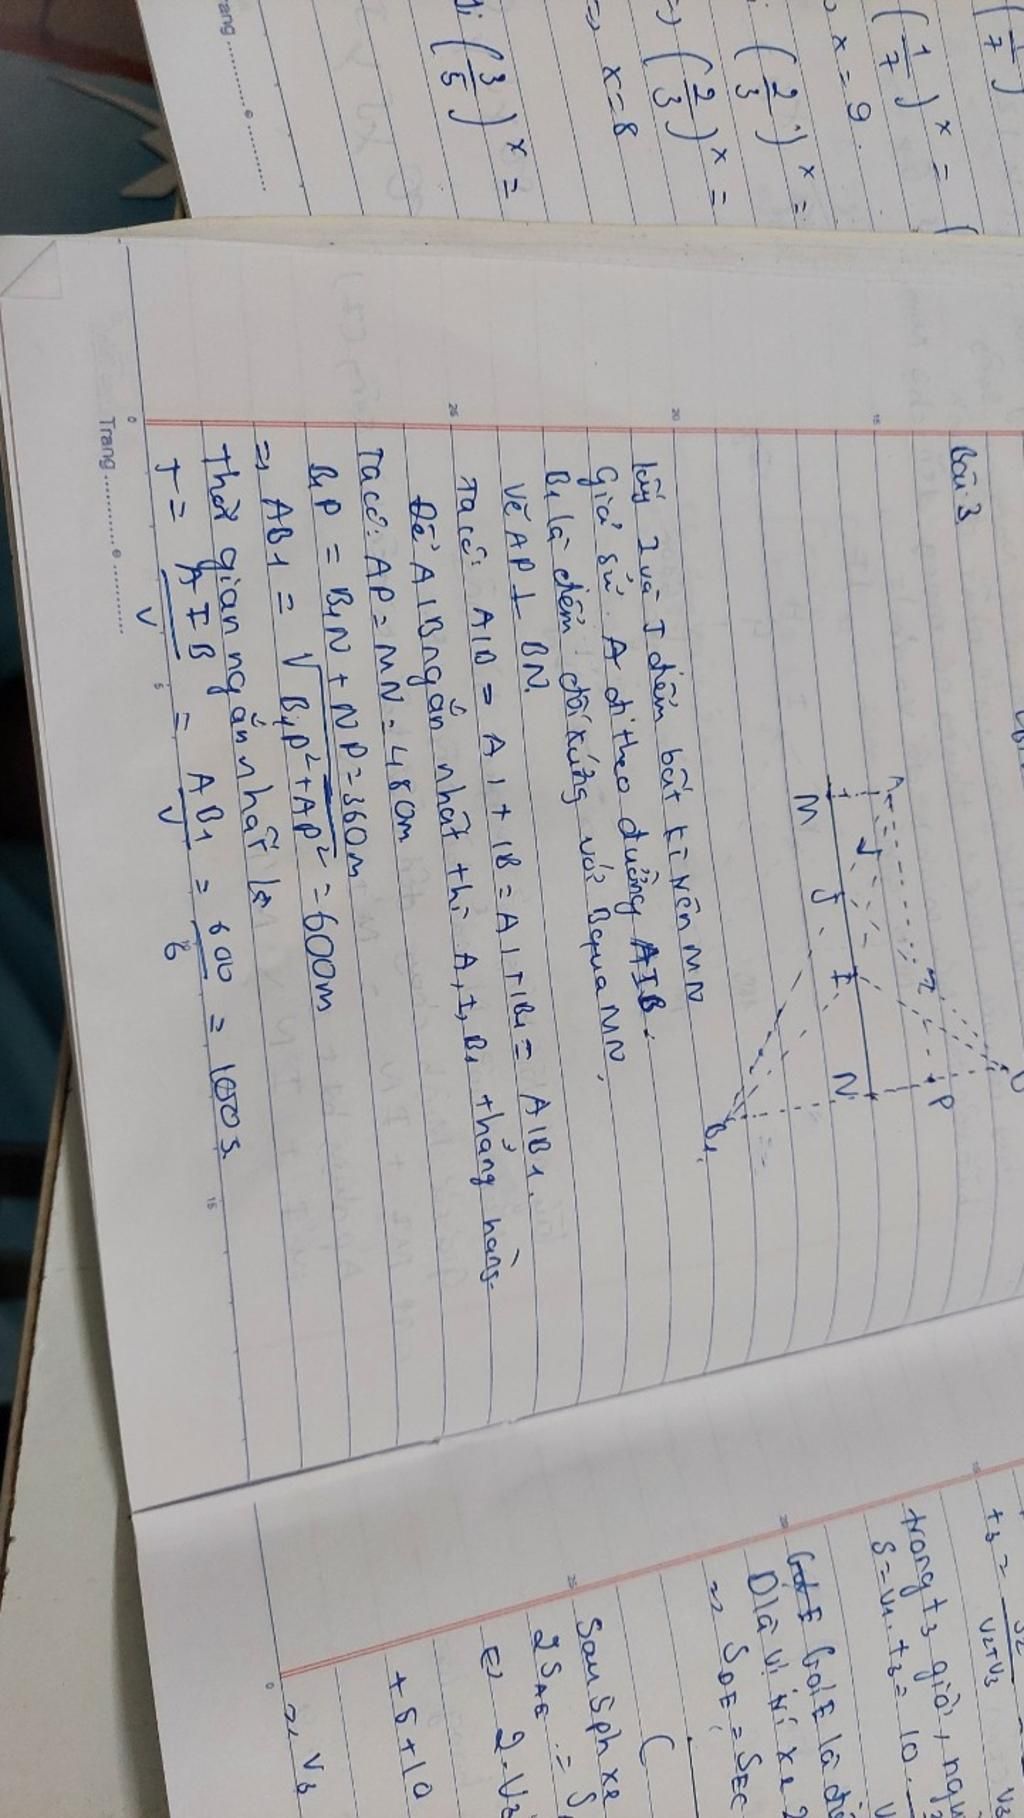 Trang
di (3/5)^x =
=> x = 8
=> (2/3)^x =
(2/3)^x =
x = 9
(1/7)^x = (
(1/7)
Bài 3
A
J
M
J
I
N
P
B1
lấy I và J điểm bất kì trên MN
Giả sử A đi theo đường AIB.
B1 là điểm đối xứng với B qua MN,
vẽ AP ⊥ BN
Ta có: AIB = AI + IB = AI + IB1 = AIB1
Để AIB ngắn nhất thì A, I, B1 thẳng hàng
Ta có: AP = MN = 480m
B1P = B1N + NP = 360m
=> AB1 = √B1P² + AP² = 600m
thời gian ngắn nhất là
T = AIB/V = AB1/V = 600/6 = 100s
Trang
0
5
15
15
20
25
t3 = S2/V2+V3
trong t3 giờ, ngư
S = V1.t3 = 10.
Gọi E là đi
D là vị trí xe 2
=> SDE = SEC
Sau 5ph xe
2SAE = S
<=> 2.V3
+5+10
=> V3